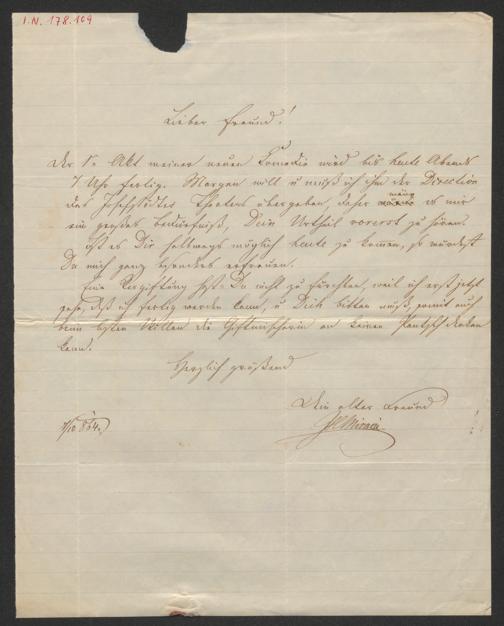 I.N. 178.109
Lieber Freund!
Der 1te Akt meiner neuen Comedie wird bis heute Abends
7 Uhr fertig. Morgen will u muß ich ihn der Direction
des Josefstädter Theaters übergeben, daher wäre es mir
ein großes Bedürfniß, Dein Urtheil vorerst zu hören.
Ist es Dir halbwegs möglich heute zu kommen, so würdest
Du mich ganz besonders erfreuen.
Eine Vergiftung hast Du nicht zu fürchten, weil ich erst jetzt
sehe, daß ich fertig werden kann, u Dich bitten muß, somit auch
beim besten Willen die Giftmischerin an keinen
kann.
Herzlich grüßend
Dein alter Freund